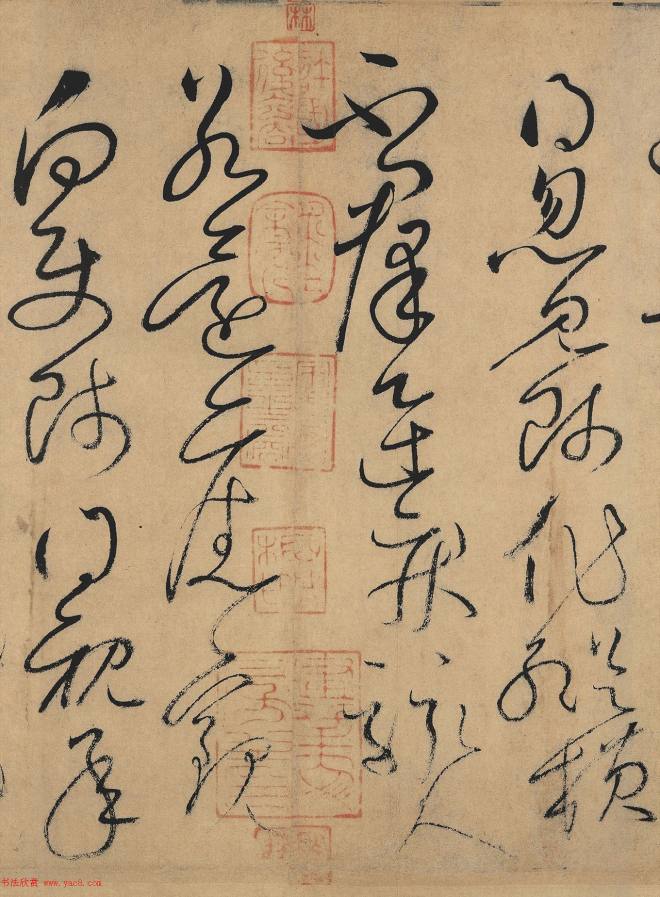 得忽見師作縱橫
不群迅疾駭人
若還舊觀
向使師得親承
书法欣赏 www.yac8.com